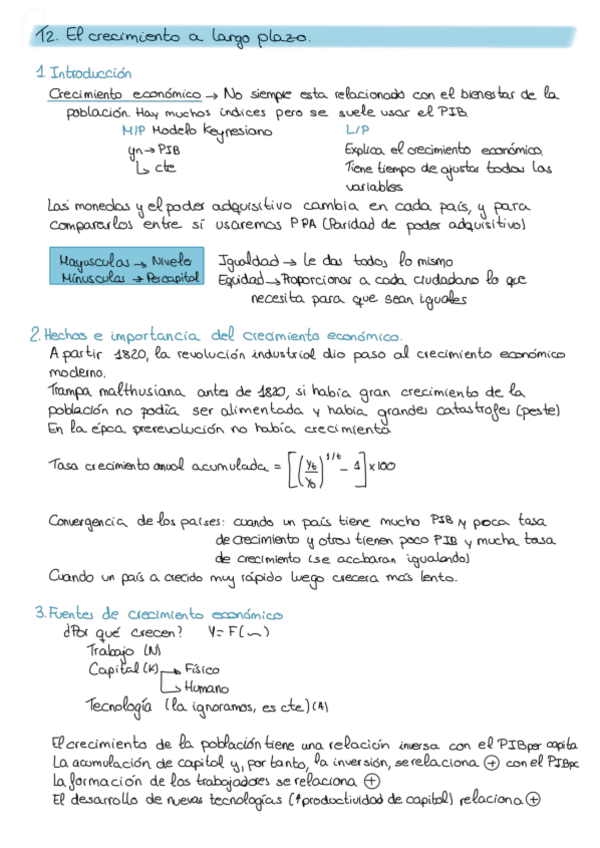 T2. El crecimiento a largo plazo.
1. Introducción
Crecimiento económico → No siempre esta relacionado con el bienestar de la
población. Hay muchos índices pero se suele usar el PIB.
M/P Modelo Keynesiano
L/P
yn → PIB
↳ cte
Explica el crecimiento económico
Tiene tiempo de ajustar todas las
variables
Las monedas y el poder adquisitivo cambia en cada país, y para
compararlos entre sí usaremos PPA (Paridad de poder adquisitivo)
Mayusculas → Nivels
Minusculas → Percapital
Igualdad → Le das todos lo mismo
Equidad → Proporcionar a cada ciudadano lo que
necesita para que sean iguales
2. Hechos e importancia del crecimiento económico.
A partir 1820, la revolución industrial dio paso al crecimiento económico
moderno.
Trampa malthusiana antes de 1820, si había gran crecimiento de la
población no podía ser alimentada y había grandes catastrofes (peste)
En la época prerevolución no había crecimiento
Tasa crecimiento anual acumulada = [(yt/y0)^1/t - 1] × 100
Convergencia de los países: cuando un país tiene mucho PIB y poca tasa
de crecimiento y otros tienen poco PIB y mucha tasa
de crecimiento (se acabaran igualando)
Cuando un país a crecido muy rápido luego crecera mas lento.
3. Fuentes de crecimiento económico
¿Por qué crecen? Y = F(~)
Trabajo (N)
Capital (K) → Físico
↳ Humano
Tecnología (la ignoramos, es cte) (A)
El crecimiento de la población tiene una relación inversa con el PIB per capita
La acumulación de capital y, por tanto, la inversión, se relaciona ⊕ con el PIBpc
la formación de los trabajadores se relaciona ⊕
El desarrollo de nuevas tecnologías (↑productividad de capital) relaciona ⊕